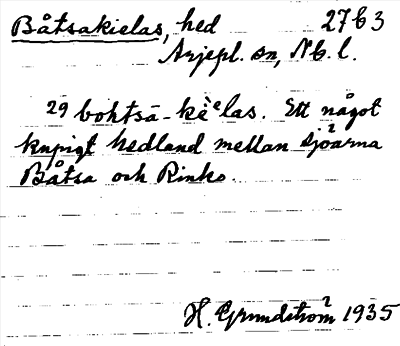 Båtsakielas, hed 27C3
Arjepl. sn, Nb. l.
29 bohtsā-kèelas. Ett något
knipigt hedland mellan sjöarna
Båtsa och Rinko.
H. Grundström 1935